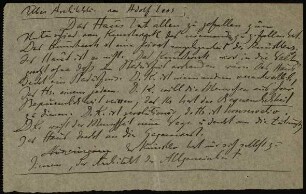 Über Architektur von Adolf Loos:
Das Haus hat allen zu gefallen zum
Unterschied vom Kunstwerk das niemand zu gefallen hat.
Das Kunstwerk ist eine Privatangelegenheit des Künstlers.
Das Haus ist es nicht. Das Kunstwerk wird in die Welt
gesetzt ohne dass Bedürfnis
Deckt ein Bedürfnis. D. K. ist niemandem verantwortlich,
das H. einem jeden. D. K. will die Menschen aus ihrer
Bequemlichkeit reissen, das H. hat der Bequemlichkeit
zu dienen. D. K. ist revolutionär, das H. konservativ.
D. K. weist der Menschheit neue Wege u denkt an die Zukunft.
Das Haus denkt an die Gegenwart.
Künstler hat nur sich selbst zu
dienen, der Architekt der Allgemeinheit.